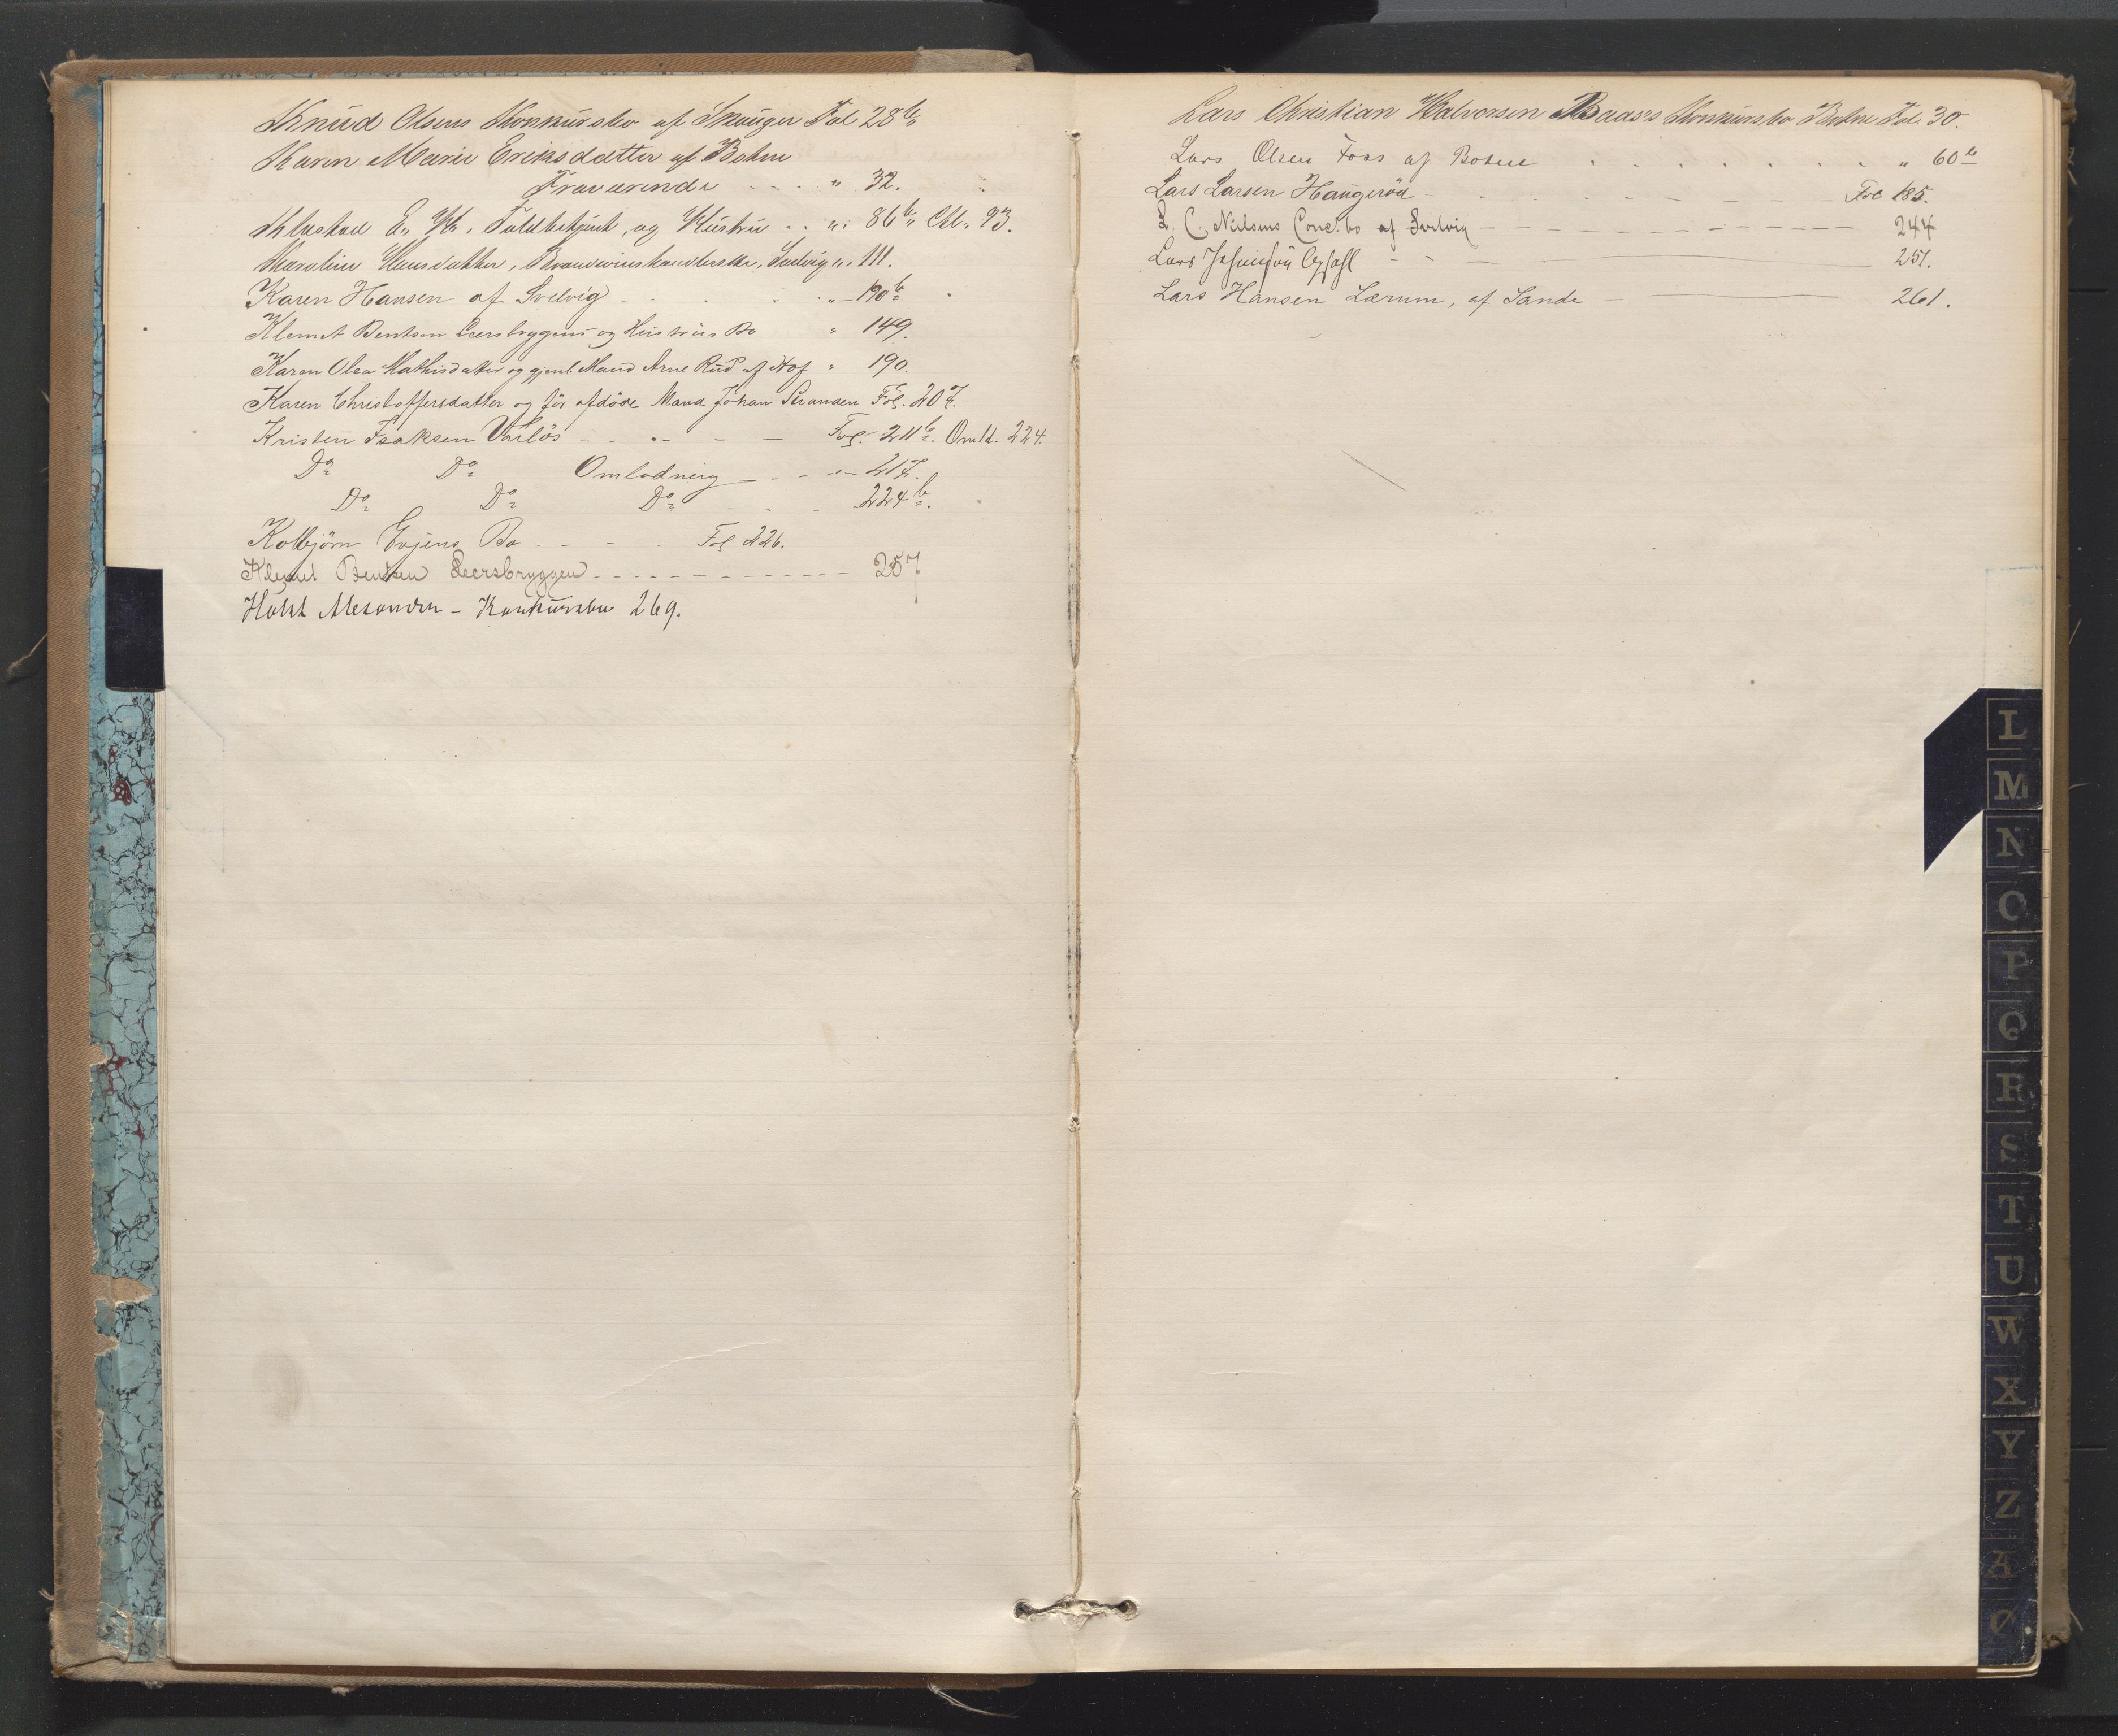 Knud Olsens Konkursbo af Skouger Fol 28b
Karen Marie Eriksdatter af Botne
Fraværende . . . " 32.
Klustad E. H., Toldbetjent, og Hustru . . ". 86b Chl. 93.
Karoline Hansdatter, Brændevinshandlerske, Svelvig ". 111.
Karen Hansen af Svelvig . . . . " 190b
Klemet Bentsen Leersbryggens og Hustrus Bo " 149.
Karen Olea Mathisdatter og gjenl. Mand Arne Rud af Hof " 190.
Karen Christoffersdatter og før afdöde Mand Johan Stranden Fol. 207.
Kristen Isaksen Varlös - - - - - Fol. 211b. Omld. 224.
Do Do Omlodning - - " - 217.
Do Do Do - - - 224b.
Kolbjörn Evjens Bo - - - Fol 226.
Klemet Bentsen Leersbryggen - - - - - - - 257
Holst Alexander - Konkursbo 269.
Lars Christian Halvorsen Baas's Konkursbo Botne Fol. 30.
Lars Olsen Foss af Botne . . . . . . . " 60b
Lars Larsen Haugeröd - - - - - Fol 185.
L. C. Nielsens Conc.bo af Svelvig - - - - - 244
Lars 251.
Lars Hansen Lærum, af Sande - 261.
L
M
N
O
P
Q
R
S
T
U
W
X
Y
Z
Æ
Ø